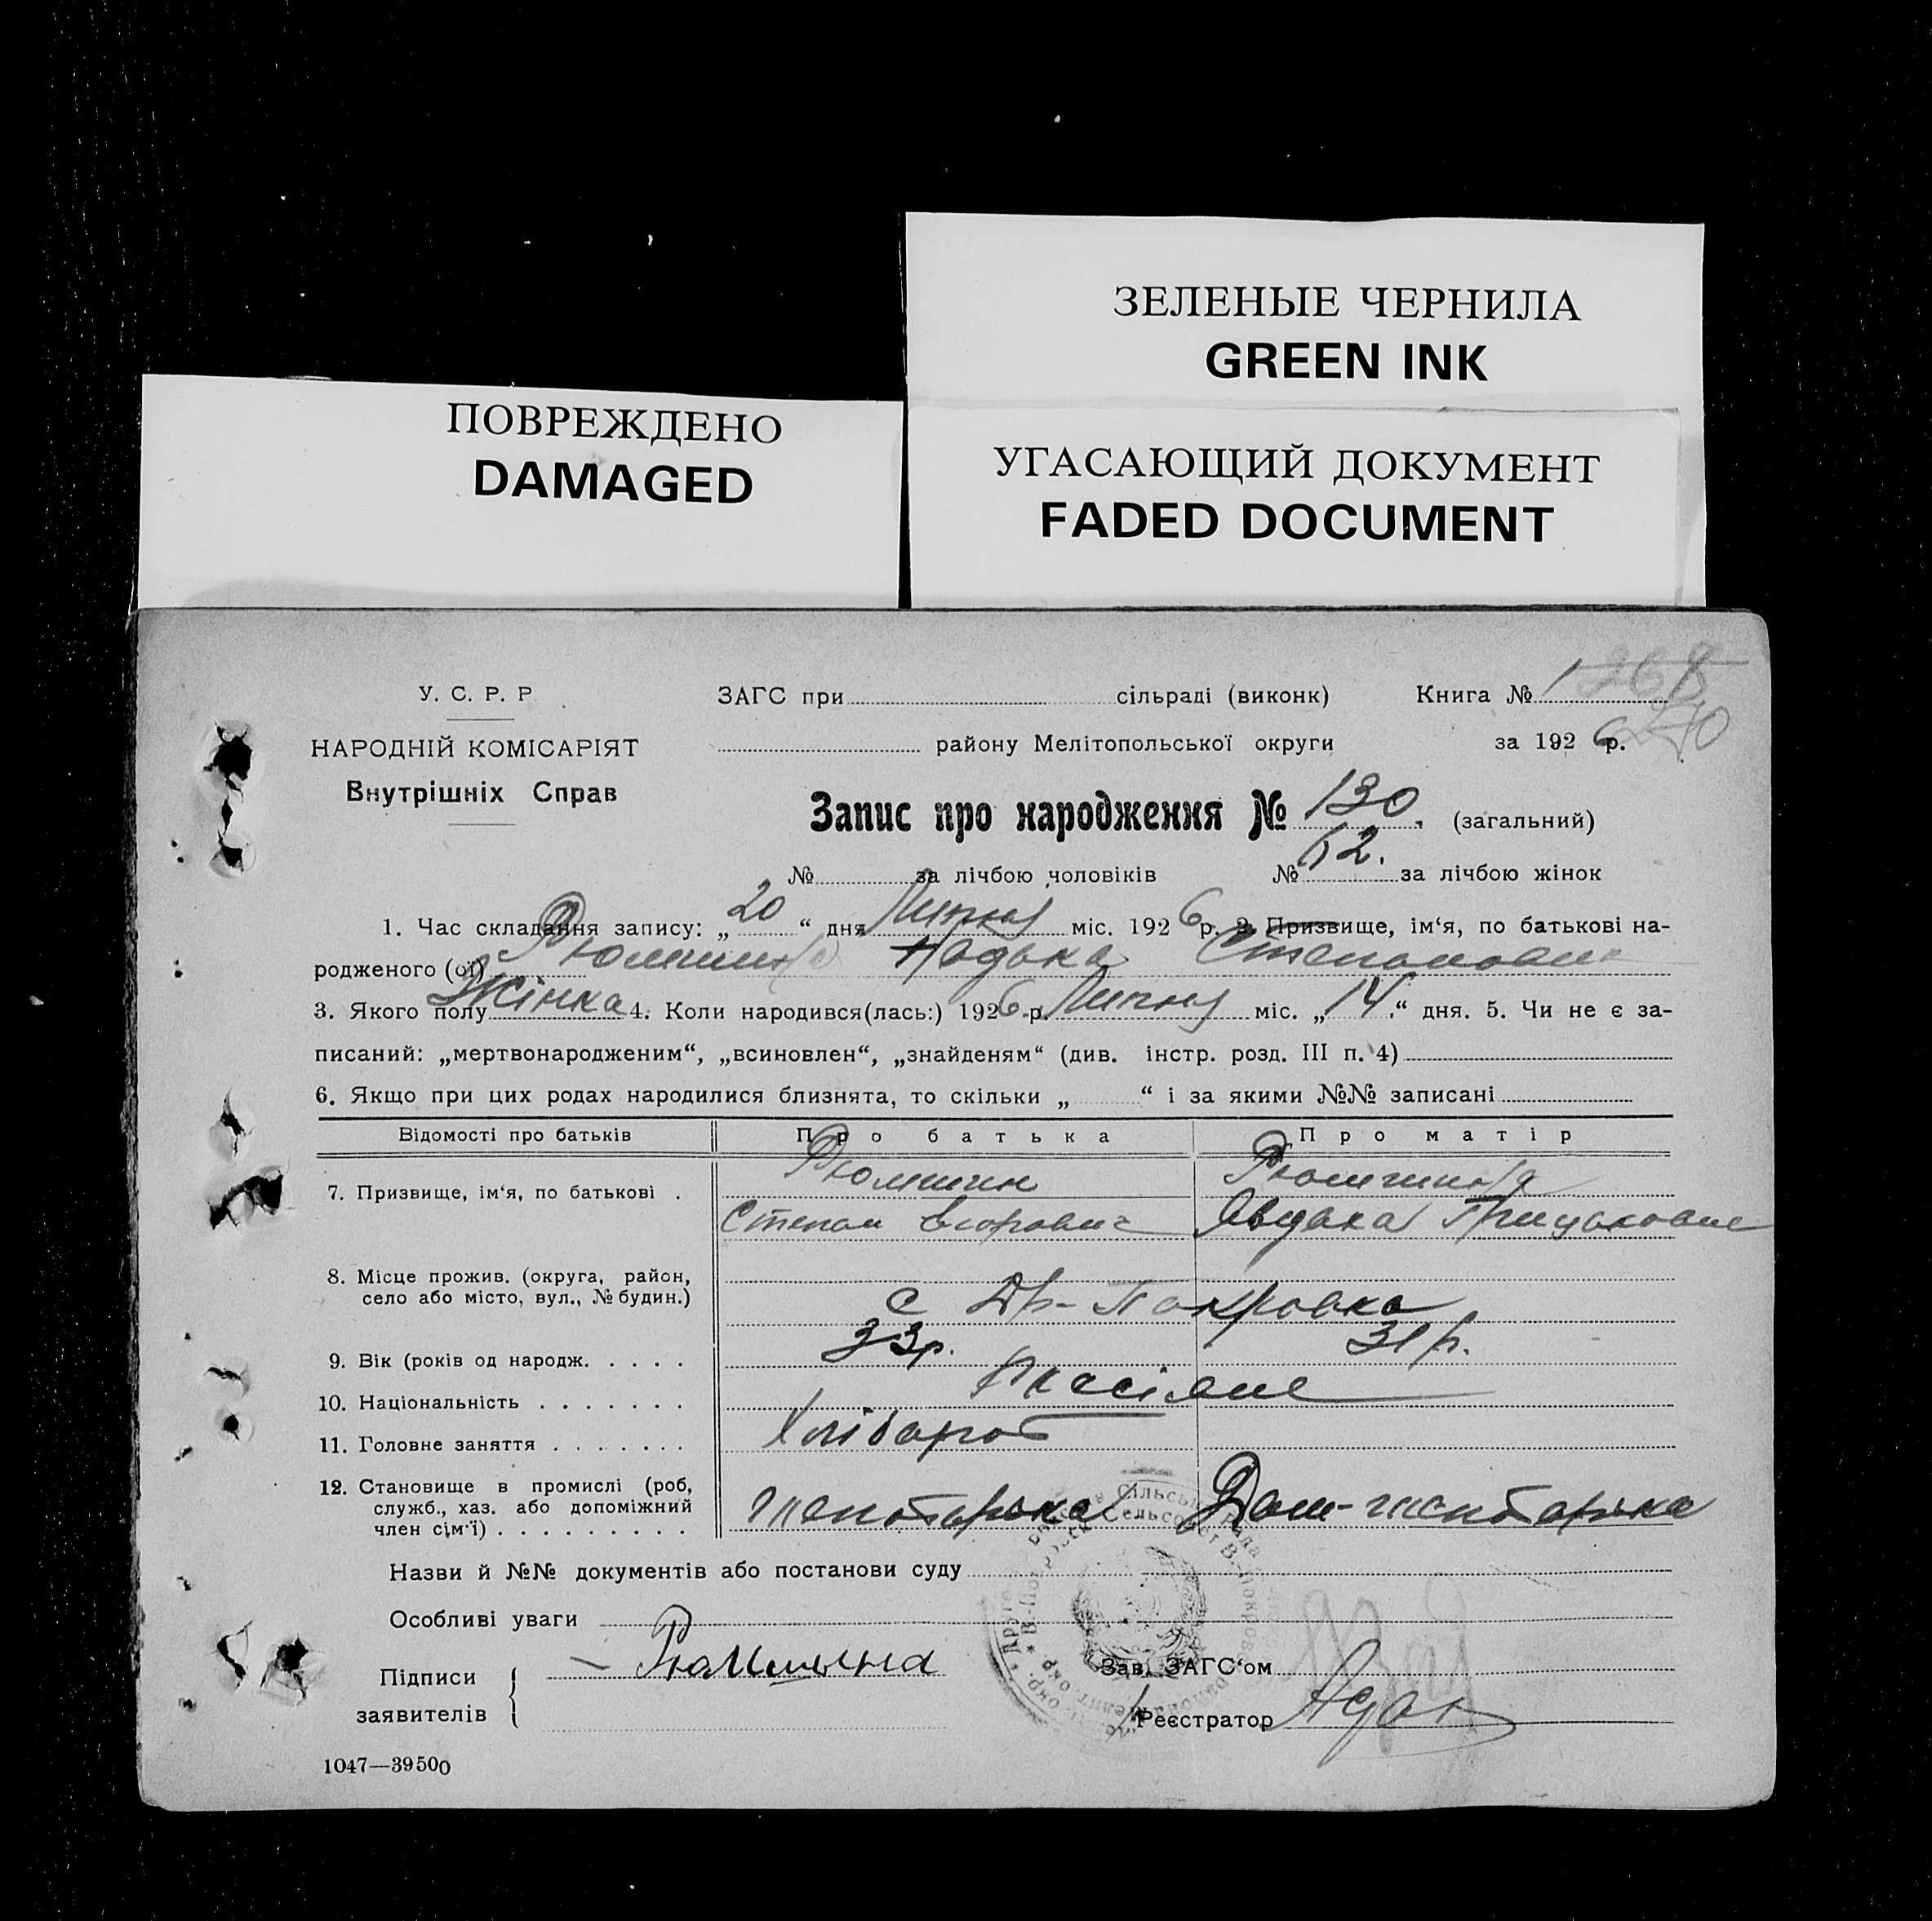 ЗЕЛЕНЫЕ ЧЕРНИЛА
GREEN INK
ПОВРЕЖДЕНО
DAMAGED
УГАСАЮЩИЙ ДОКУМЕНТ
FADED DOCUMENT
У. С. Р. Р
ЗАГС при сільраді (виконк) Книга № 1 268
270
НАРОДНІЙ КОМІСАРІЯТ
району Мелітопольської округи за 1926 р.
Внутрішніх Справ
Запис про народження № 130. (загальний)
№ за лічбою чоловіків № 62. за лічбою жінок
1. Час складання запису: „20“ дня Липня міс. 1926 р. 2. Призвище, ім‘я, по батькові на-
родженого (ої) Рюмшина Надька Степановна
3. Якого полу Жінка 4. Коли народився(лась:) 1926 р. Липня міс. „14“ дня. 5. Чи не є за-
писаний: „мертвонародженим“, „всиновлен“, „знайденям“ (див. інстр. розд. III п. 4)
6. Якщо при цих родах народилися близнята, то скільки „ “ і за якими №№ записані
Відомості про батьків Про батька Про матір
7. Призвище, ім‘я, по батькові . Рюмшин Рюмшина
Степан Явдька
8. Місце прожив. (округа, район,
село або місто, вул., № будин.) с Др-Покровка
9. Вік (років од народж. . . . . 33р. 31р.
10. Національність . . . . . . .
11. Головне заняття . . . . . . . Хлібороб
12. Становище в промислі (роб,
служб., хаз. або допоміжний
член сім‘ї) . . . . . . . . .
Назви й №№ документів або постанови суду
Особливі уваги
Підписи
заявителів
Рюмшына
Зав. ЗАГС‘ом
Реєстратор
1047—39500